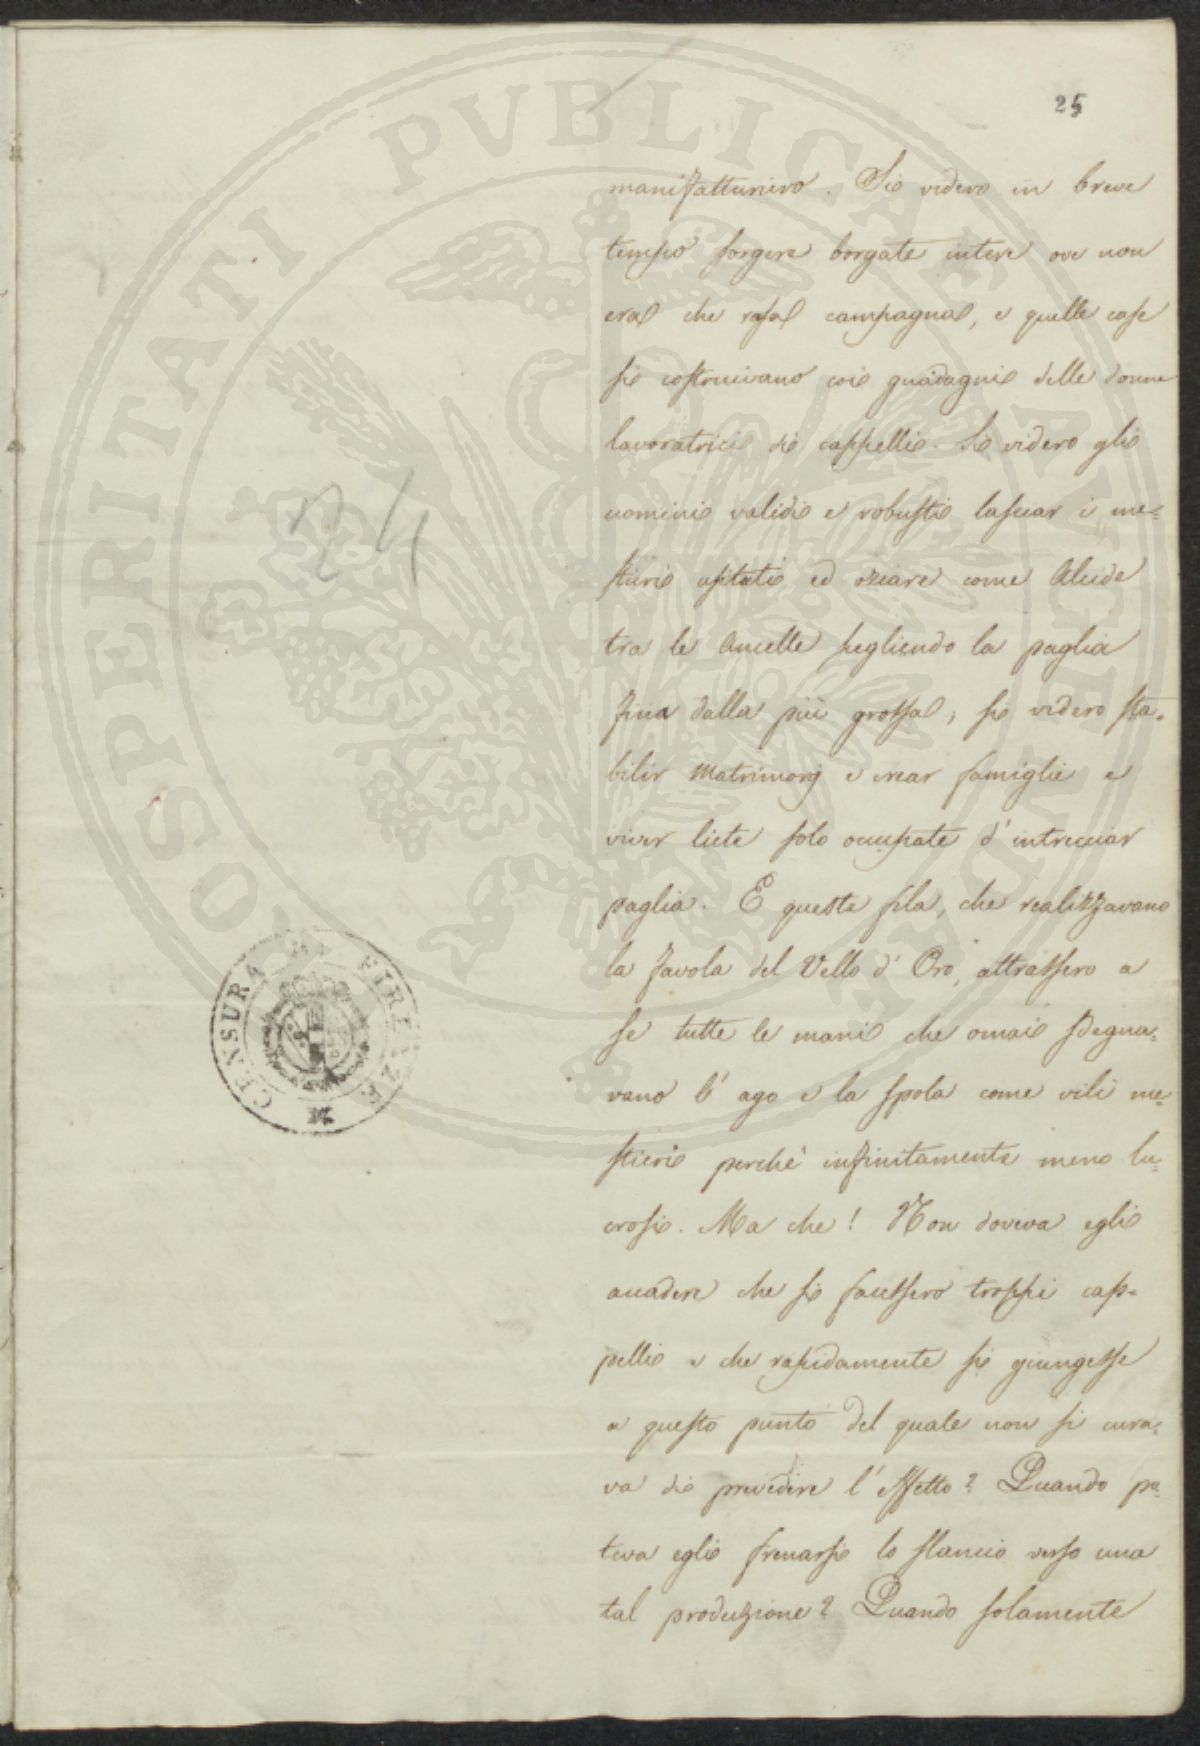 25
manifatturiero. Si videro in breve
tempo sorgere borgate intere ove non
era che rasa campagna, e quelle case
si costruivano coi guadagni delle donne
lavoratrici di cappelli. Si videro gli
uomini validi e robusti lasciar i me=
stieri usitati ed oziare come Alcide
tra le Ancelle scegliendo la paglia
fina dalla più grossa, si videro sta=
bilir Matrimonj e crear famiglie e
viver liete solo occupate d'intrecciar
paglia. E queste fila, che realizzavano
la favola del Vello d'Oro, attrassero a
se tutte le mani che omai sdegna=
vano l'ago e la spola come vili me=
stieri perchè infinitamente meno lu=
crosi. Ma che! Non doveva egli
accadere che si facessero troppi cap=
pelli e che rapidamente si giungesse
a questo punto del quale non si cura=
va di prevedere l'effetto? Quando po=
teva egli frenarsi lo slancio verso una
tal produzione? Quando solamente
CENSURA DI FIRENZE
PROSPERITATI PVBLICAE AVGENDAE